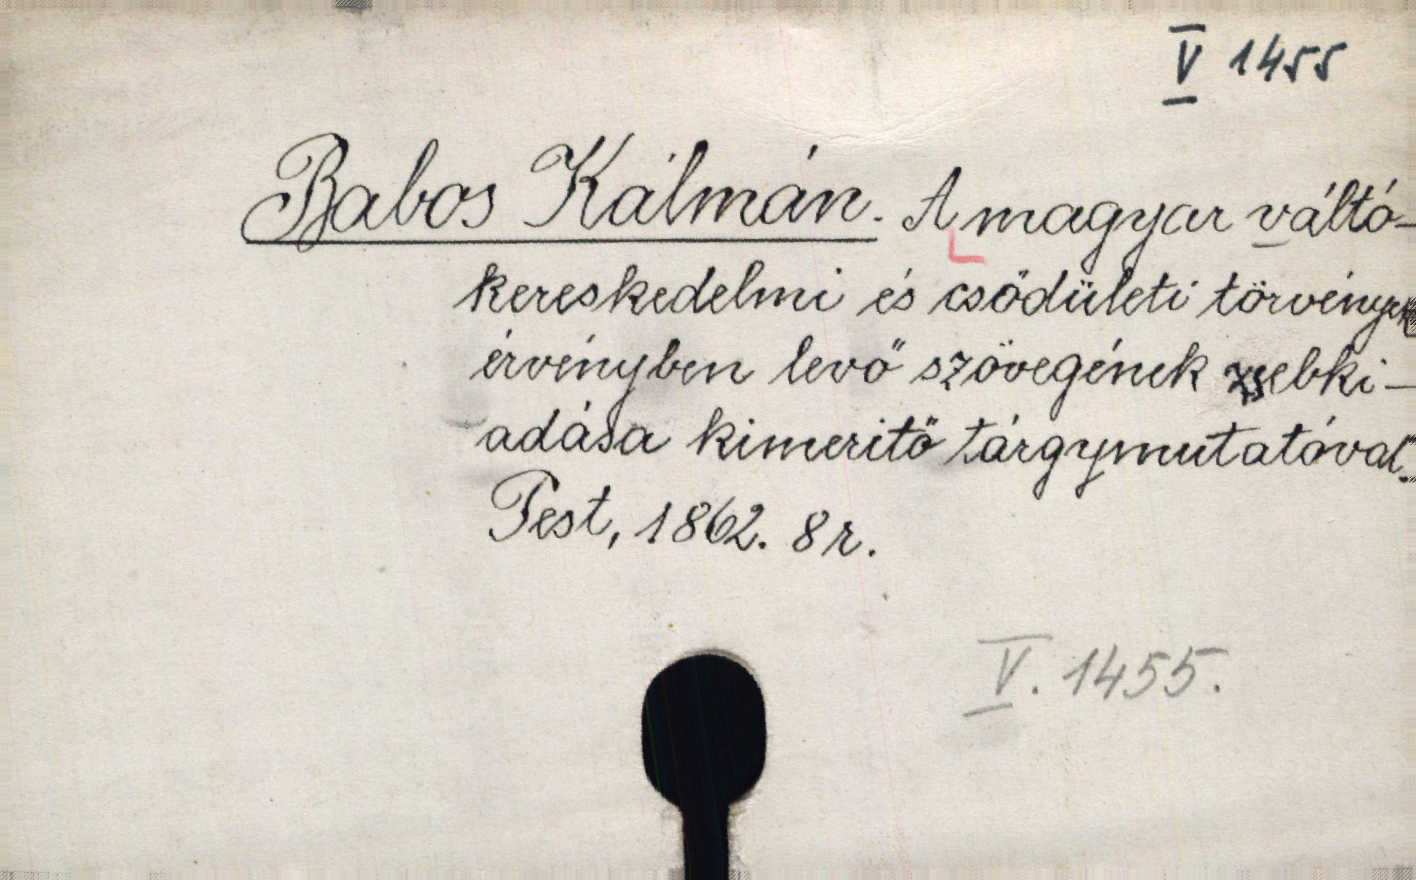 V 1455
Babos Kálmán. A magyar váltó-
kereskedelmi és csődületi törvények
érvényben levő szövegének zsebki-
adása kimeritő tárgymutatóval.
Pest, 1862. 8r.
V. 1455.